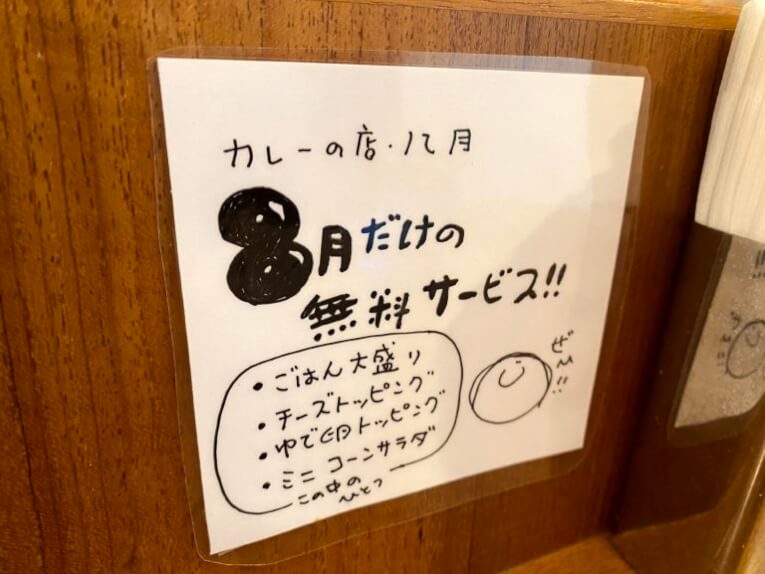 カレーの店・12月
8月だけの
無料サービス!!
・ごはん大盛り
・チーズトッピング
・ゆで卵トッピング
・ミニコーンサラダ
この中の
ひとつ
ぜひ!!